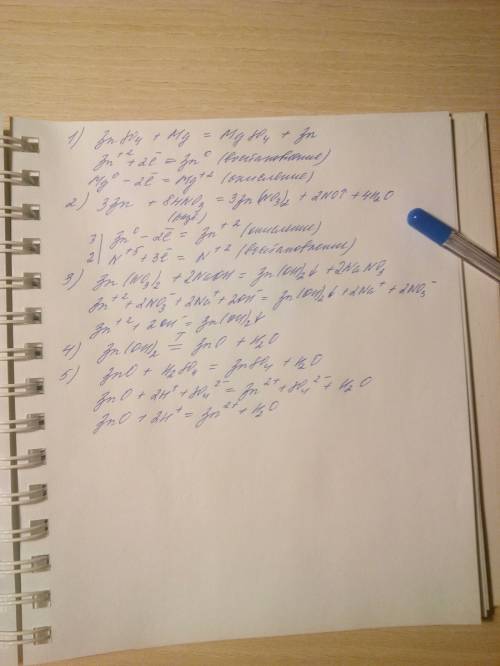 1) ZnSO4 + Mg = MgSO4 + Zn
Zn+2 + 2ē = Zn0 (восстановление)
Mg0 - 2ē = Mg+2 (окисление)
2) 3Zn + 8HNO3 = 3Zn(NO3)2 + 2NO↑ + 4H2O
(разб)
3| Zn0 - 2ē = Zn+2 (окисление)
2| N+5 + 3ē = N+2 (восстановление)
3) Zn(NO3)2 + 2NaOH = Zn(OH)2↓ + 2NaNO3
Zn+2 + 2NO3- + 2Na+ + 2OH- = Zn(OH)2↓ + 2Na+ + 2NO3-
Zn+2 + 2OH- = Zn(OH)2↓
4) Zn(OH)2 T= ZnO + H2O
5) ZnO + H2SO4 = ZnSO4 + H2O
ZnO + 2H+ + SO4 2- = Zn2+ + SO4 2- + H2O
ZnO + 2H+ = Zn2+ + H2O